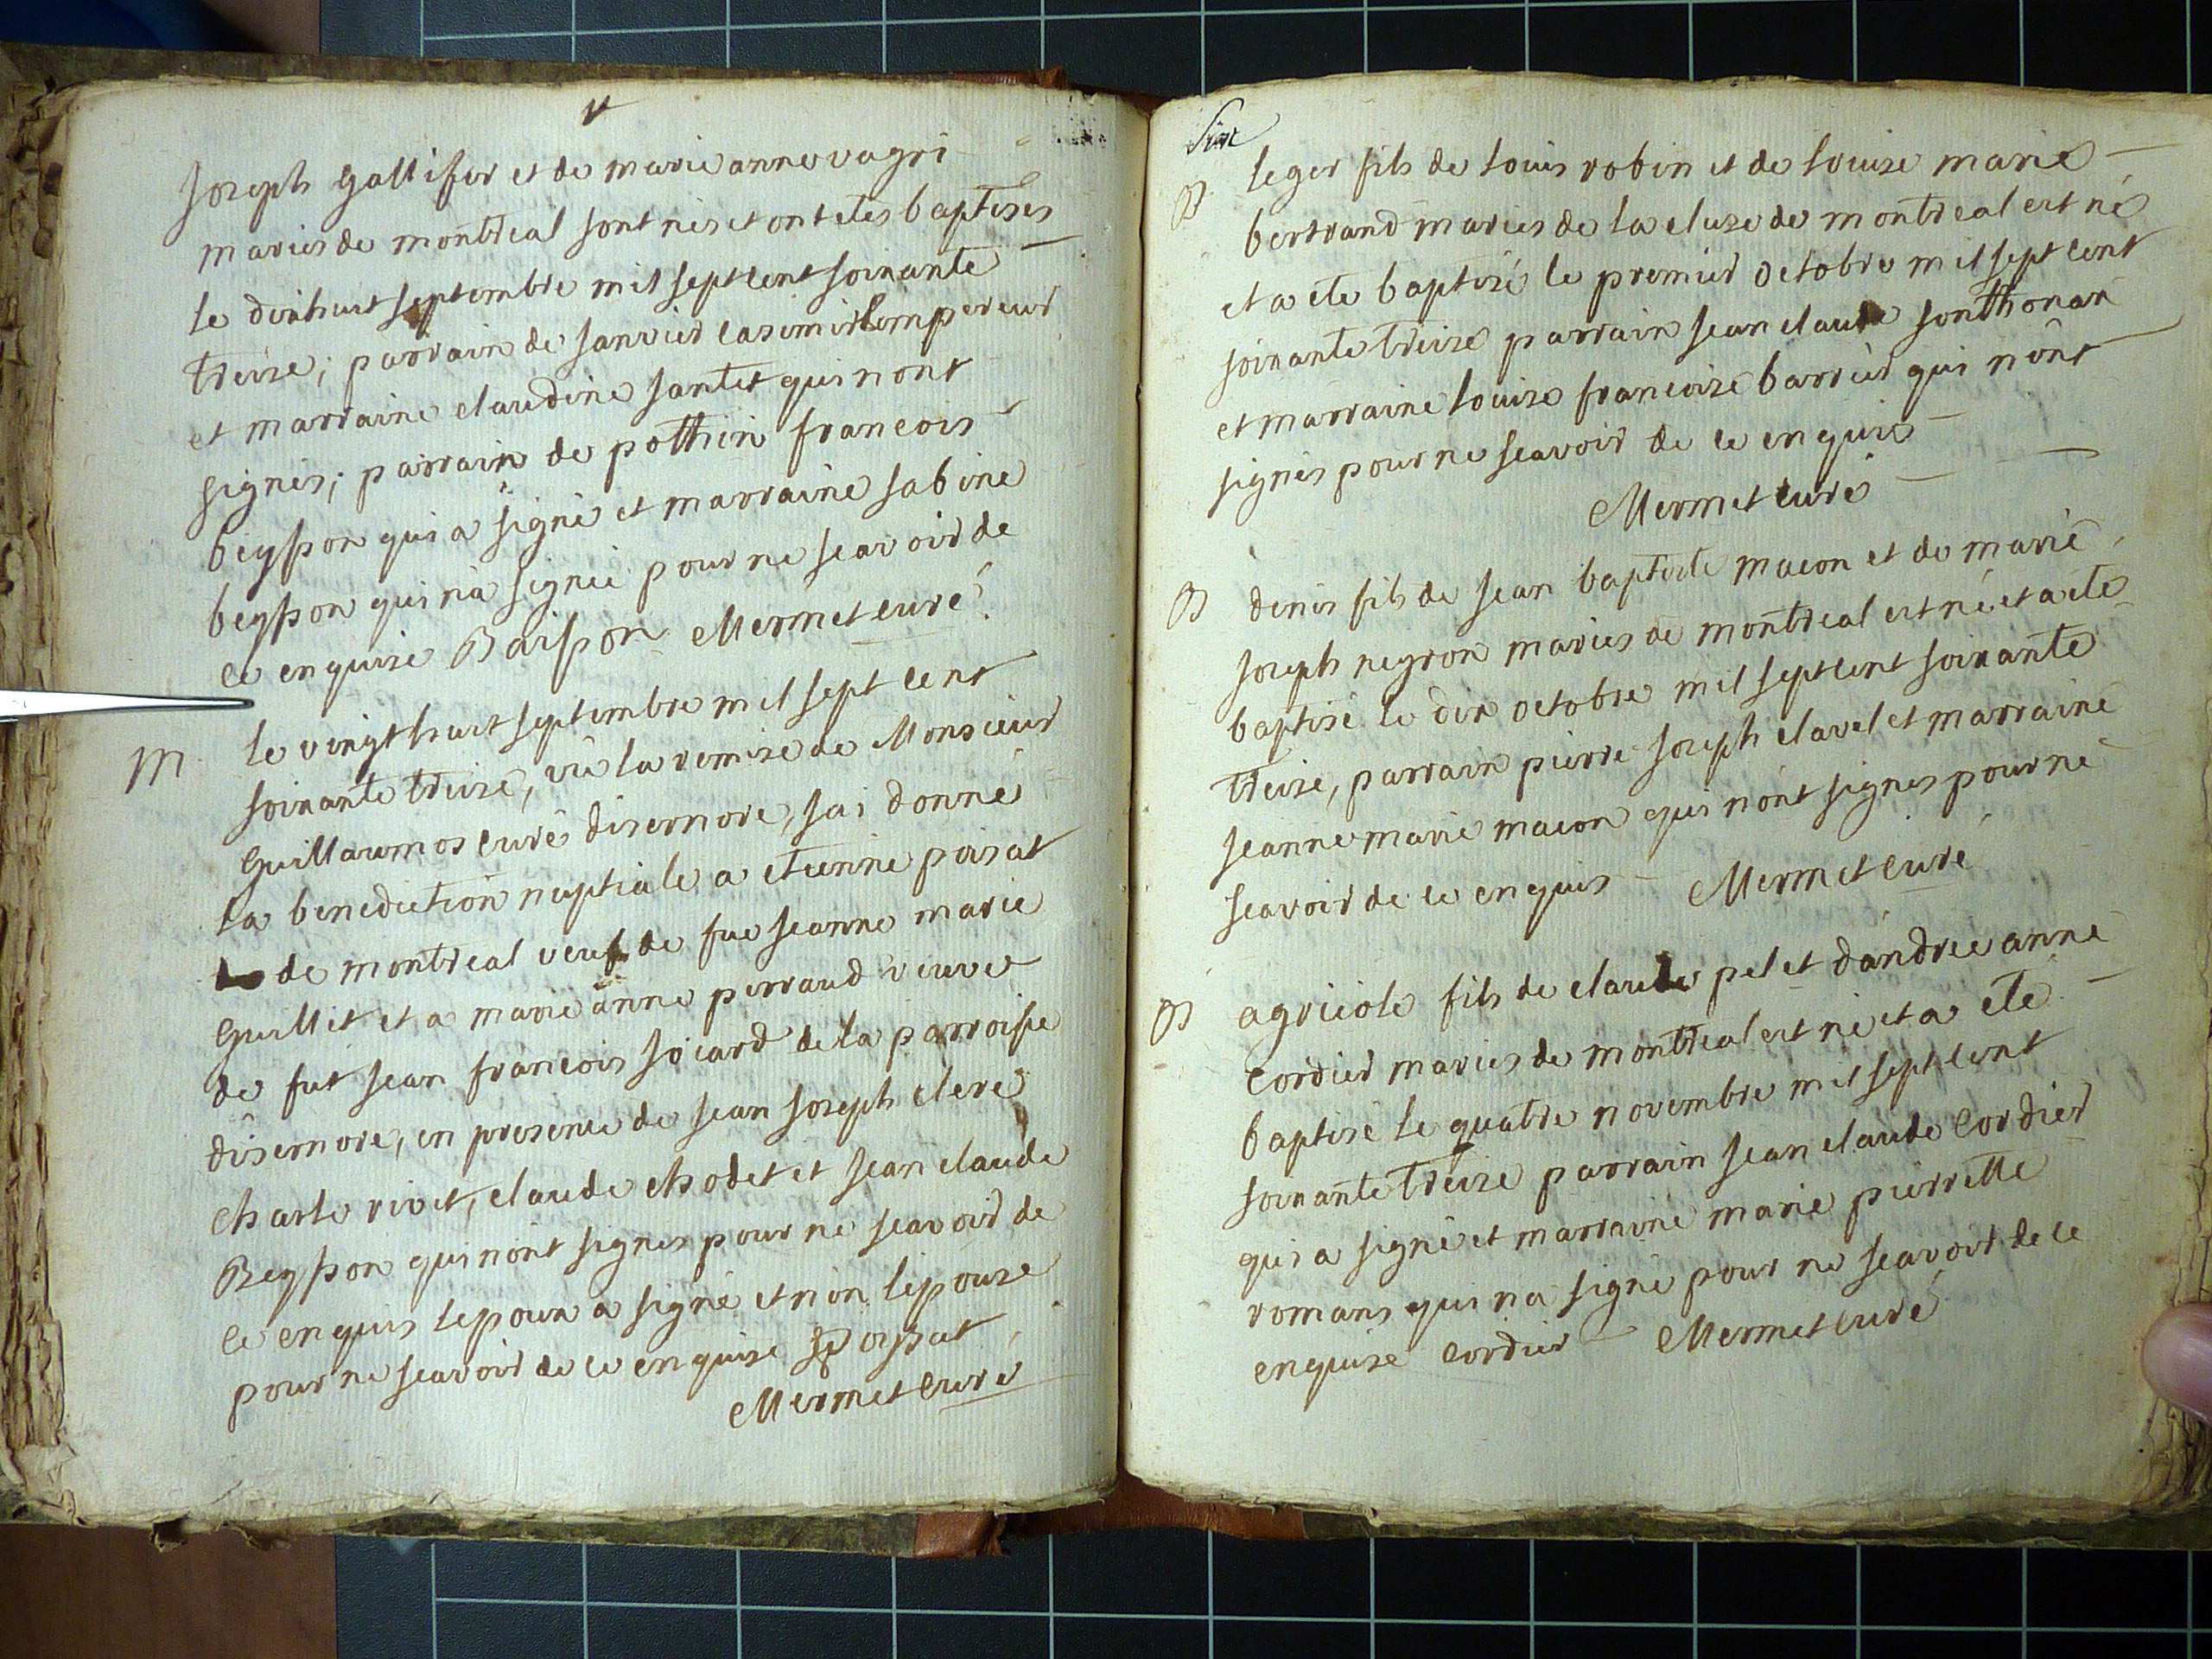 Joseph Gallifer et de marie anne vagri
maries de montreal sont nés et ont etes baptises
le dixhuit septembre mil sept cent soixante
treize; parrain de janvier casimir lempereur
et marraine claudine jantet qui n'ont
signés; parrain de pothin francois
beysson qui a signé et marraine sabine
beysson qui n'a signée pour ne scavoir de
ce enquise Baisson Mermet curé
M le vingt huit septembre mil sept cent
soixante treize, vû la remise de Monsieur
Guillaumos curé disernore, j'ai donné
la benediction nuptiale a etienne poisat
de montreal veuf de fue jeanne marie
Guillet et a marie anne perraud veuve
de fut jean francois jocard de la parroisse
disernore, en presence de jean joseph clerc
charle rivet, claude chodet et jean claude
Beysson qui n'ont signes pour ne scavoir de
ce enquis lepoux a signé et non lépouse
pour ne scavoir de ce enquise Poissat
Mermet curé
Six
B leger fils de louis robin et de louise marie
bertrand maries de la cluse de montreal est né
et a ete baptisé le premier octobre mil sept cent
soixante treize parrain jean claude jonthonax
et marraine louise francoise barrier qui n'ont
signés pour ne scavoir de ce enquis
Mermet curé
B denis fils de jean baptiste macon et de marie
joseph negron maries de montreal est né et a ete
baptisé le dix octobre mil sept cent soixante
treize, parrain pierre joseph clavel et marraine
jeanne marie macon qui n'ont signes pour ne
scavoir de ce enquis Mermet curé
B agricole fils de claude pelet d'andrée anne
cordier maries de montreal est né et a eté
baptisé le quatre novembre mil sept cent
soixante treize parrain jean claude cordier
qui a signé et marraine marie pierrette
romans qui n'a signé pour ne scavoir de ce
enquise cordier Mermet curé